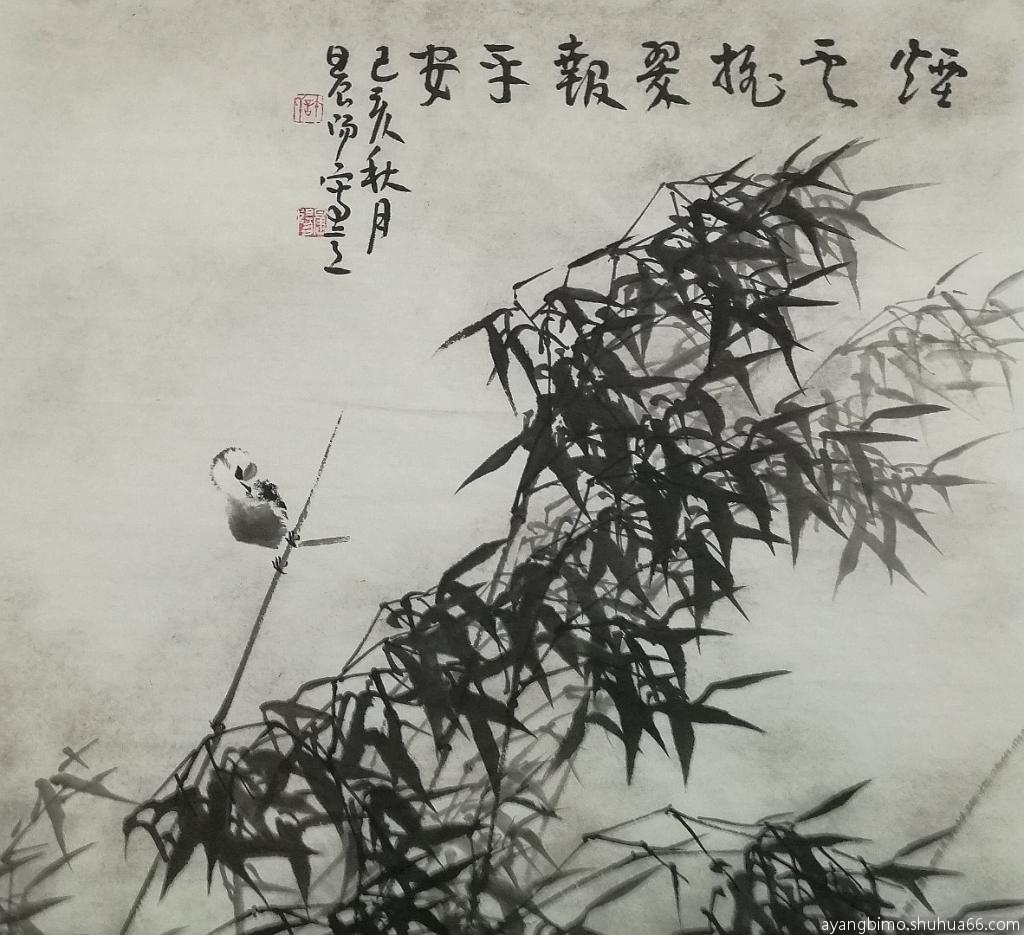 煙云翠報平安
己亥秋月
晨阳写
ayangbimo.shuhua66.com